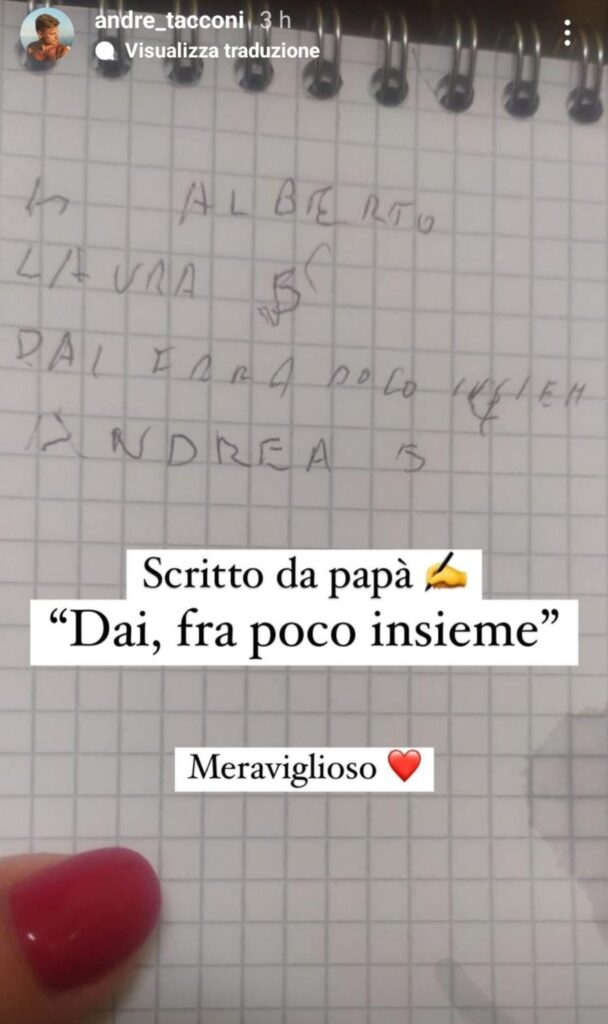 andre_tacconi 3 h
Visualizza traduzione
ALBERTO
LAURA
DAI FRA POCO INSIEM
ANDREA 5
Scritto da papà ✍️
“Dai, fra poco insieme”
Meraviglioso ❤️